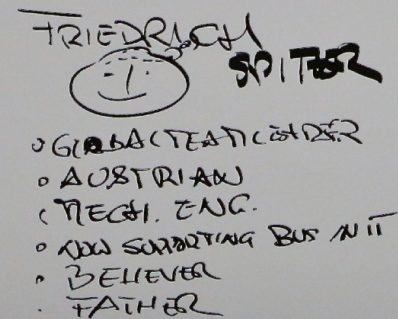 FRIEDRICH
SPITZER
• GLOBAL TEAM LEADER
• AUSTRIAN
• MECH. ENG.
• NOW SUPPORTING BUS IN IT
• BELIEVER
• FATHER